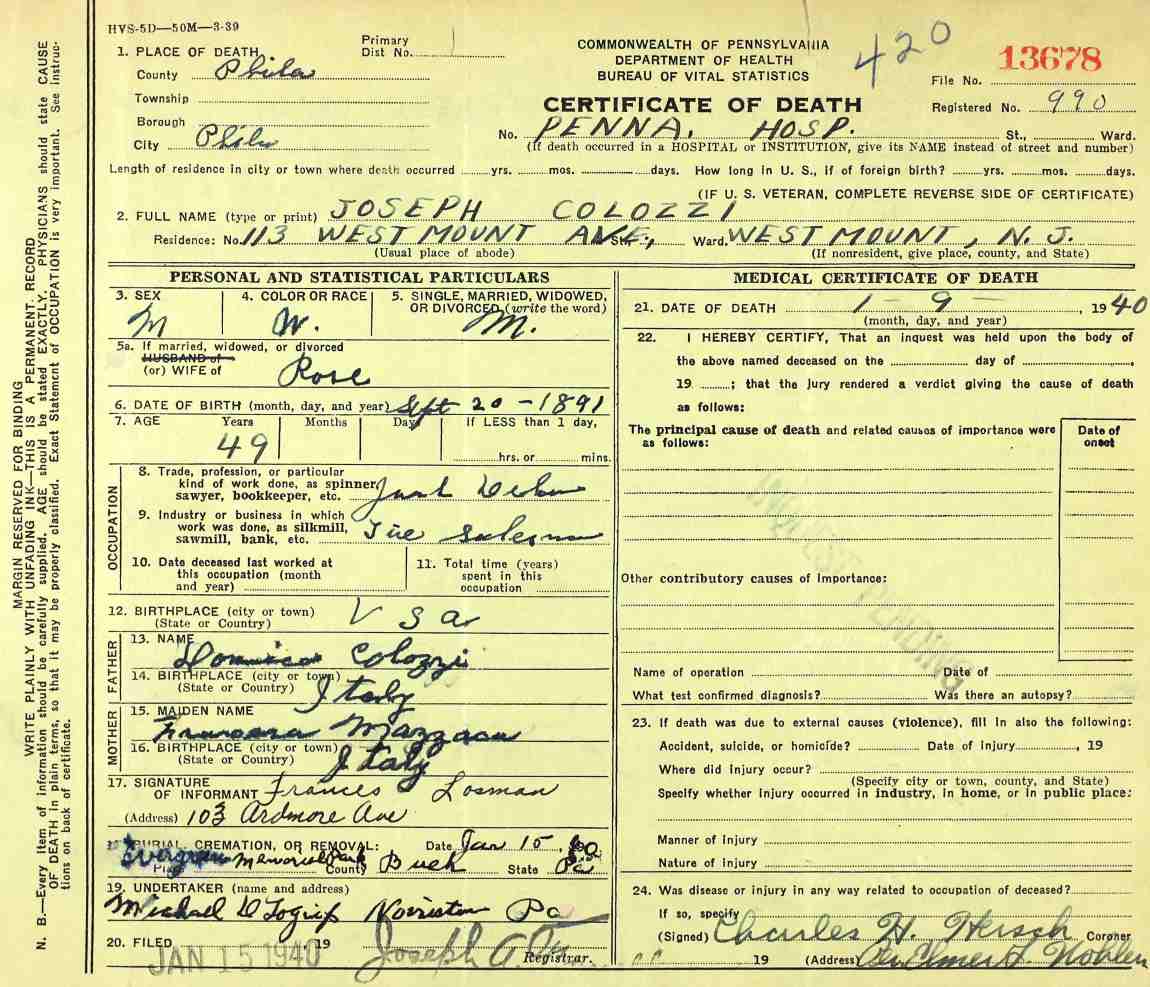 HVS-5D—50M—3-39
Primary
Dist No.
COMMONWEALTH OF PENNSYLVANIA
DEPARTMENT OF HEALTH
BUREAU OF VITAL STATISTICS
420
13678
File No.
1. PLACE OF DEATH
County Phila
Township
Borough
City Phila
CERTIFICATE OF DEATH
Registered No. 990
No. PENNA. HOSP. St., Ward.
(If death occurred in a HOSPITAL or INSTITUTION, give its NAME instead of street and number)
Length of residence in city or town where death occurred yrs. mos. days. How long in U. S., if of foreign birth? yrs. mos. days.
(IF U. S. VETERAN, COMPLETE REVERSE SIDE OF CERTIFICATE)
2. FULL NAME (type or print) JOSEPH COLOZZI
Residence: No. 113 WEST MOUNT AVE. St., Ward. WEST MOUNT, N. J.
(Usual place of abode) (If nonresident, give place, county, and State)
PERSONAL AND STATISTICAL PARTICULARS
3. SEX
M
4. COLOR OR RACE
W.
5. SINGLE, MARRIED, WIDOWED,
OR DIVORCED (write the word)
M.
5a. If married, widowed, or divorced
HUSBAND of
(or) WIFE of Rose
6. DATE OF BIRTH (month, day, and year) Sept 20 - 1891
7. AGE Years Months Days If LESS than 1 day,
49
hrs. or mins.
OCCUPATION
8. Trade, profession, or particular
kind of work done, as spinner,
sawyer, bookkeeper, etc. Junk
9. Industry or business in which
work was done, as silkmill,
sawmill, bank, etc.
10. Date deceased last worked at
this occupation (month
and year)
11. Total time (years)
spent in this
occupation
12. BIRTHPLACE (city or town)
(State or Country) USA
FATHER
13. NAME
Colozzi
14. BIRTHPLACE (city or town)
(State or Country) Italy
MOTHER
15. MAIDEN NAME
16. BIRTHPLACE (city or town)
(State or Country) Italy
17. SIGNATURE
OF INFORMANT Frances Losman
(Address) 103 Ardmore Ave
BURIAL, CREMATION, OR REMOVAL: Date Jan 15
Evergreen Memorial Park County State Pa
19. UNDERTAKER (name and address)
Michael Pa
20. FILED , 19
JAN 15 1940
Joseph
Registrar.
MEDICAL CERTIFICATE OF DEATH
21. DATE OF DEATH 1 - 9 - , 1940
(month, day, and year)
22. I HEREBY CERTIFY, That an inquest was held upon the body of
the above named deceased on the day of
19 ; that the jury rendered a verdict giving the cause of death
as follows:
The principal cause of death and related causes of importance were
as follows:
Date of
onset
INQUEST PENDING
Other contributory causes of importance:
Name of operation Date of
What test confirmed diagnosis? Was there an autopsy?
23. If death was due to external causes (violence), fill in also the following:
Accident, suicide, or homicide? Date of injury , 19
Where did injury occur?
(Specify city or town, county, and State)
Specify whether injury occurred in industry, in home, or in public place:
Manner of injury
Nature of injury
24. Was disease or injury in any way related to occupation of deceased?
If so, specify
(Signed) Charles H. Hersch Coroner
19 (Address)
MARGIN RESERVED FOR BINDING
WRITE PLAINLY WITH UNFADING INK—THIS IS A PERMANENT RECORD
N. B.—Every item of information should be carefully supplied. AGE should be stated EXACTLY. PHYSICIANS should state CAUSE
OF DEATH in plain terms, so that it may be properly classified. Exact Statement of OCCUPATION is very important. See instruc-
tions on back of certificate.